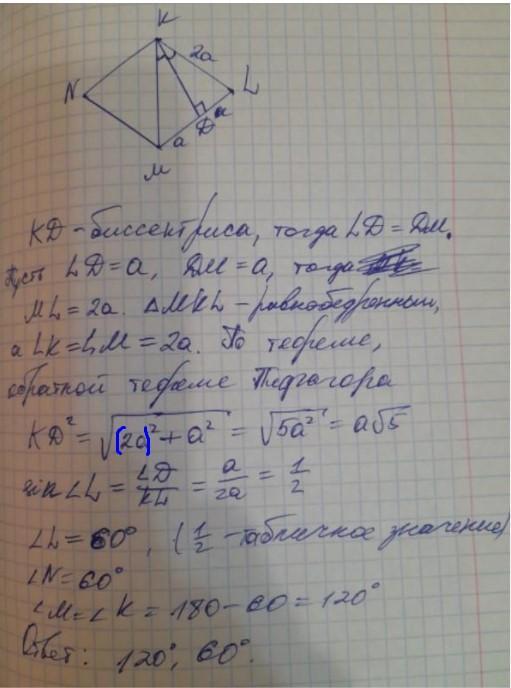 K
2a
N
L
D a
a
M
KD - биссектриса, тогда LD = DM.
Пусть LD = a, DM = a, тогда
ML = 2a. △MKL - равнобедренный,
а LK = LM = 2a. По теореме,
обратной теореме Пифагора
KD² = √((2a)² + a²) = √(5a²) = a√5
sin ∠L = LD/KL = a/2a = 1/2
∠L = 60°, (1/2 - табличное значение)
∠N = 60°
∠M = ∠K = 180 - 60 = 120°
Ответ: 120°, 60°.